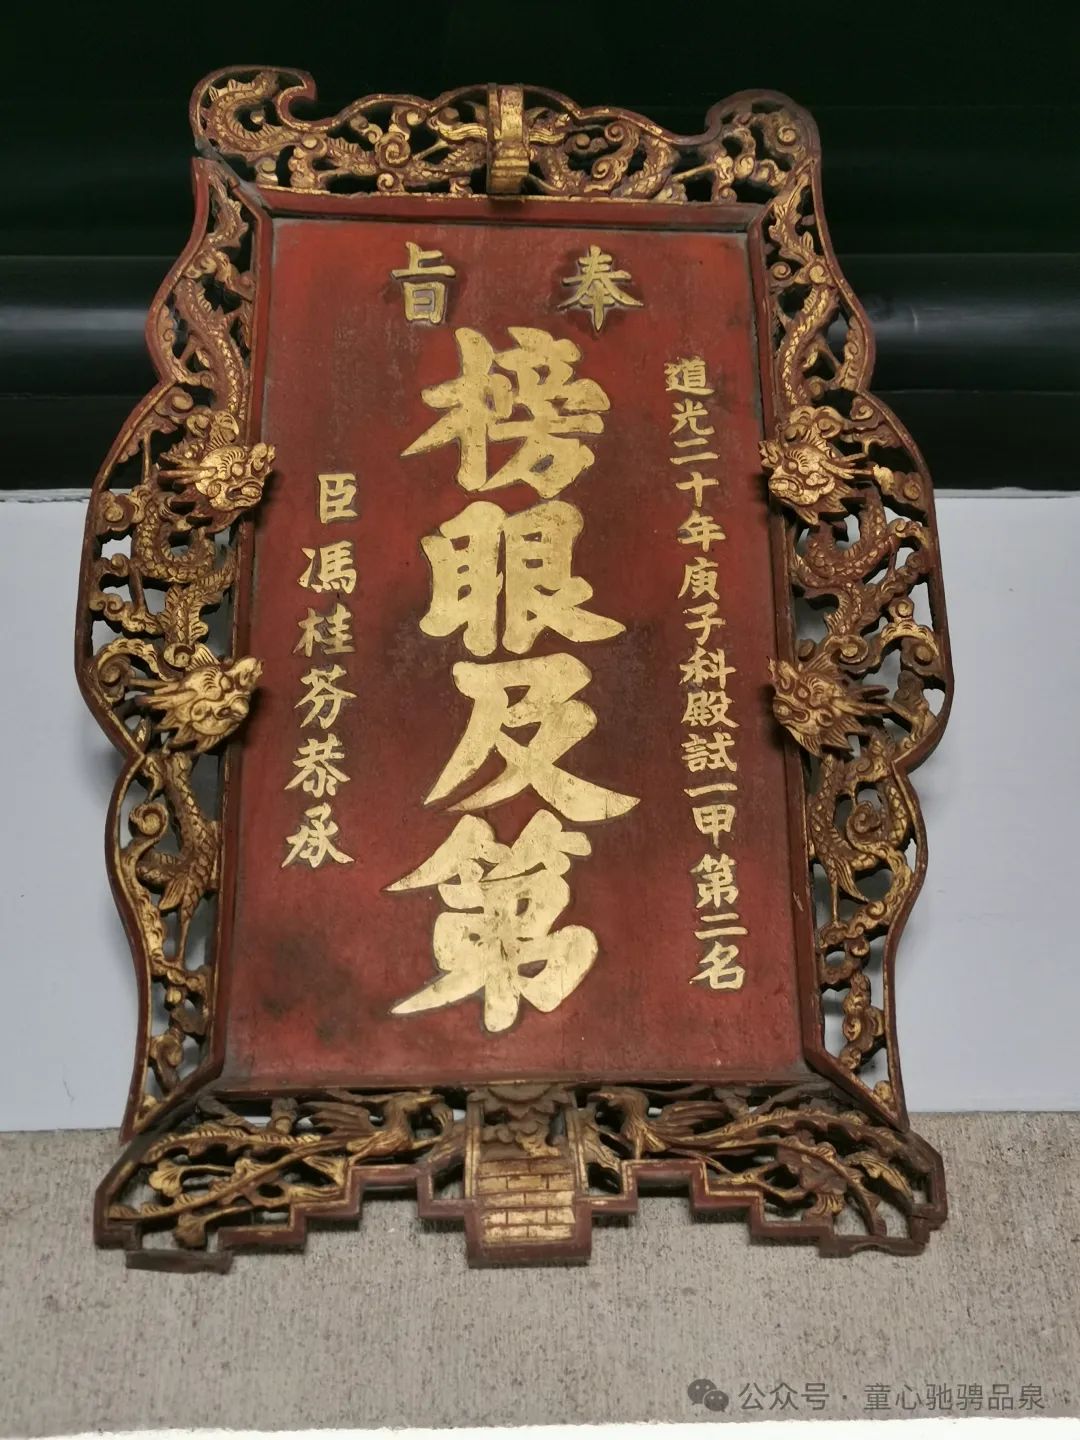 奉旨
道光二十年庚子科殿試一甲第二名
榜眼及第
臣馮桂芬恭承
公众号·童心驰骋品泉